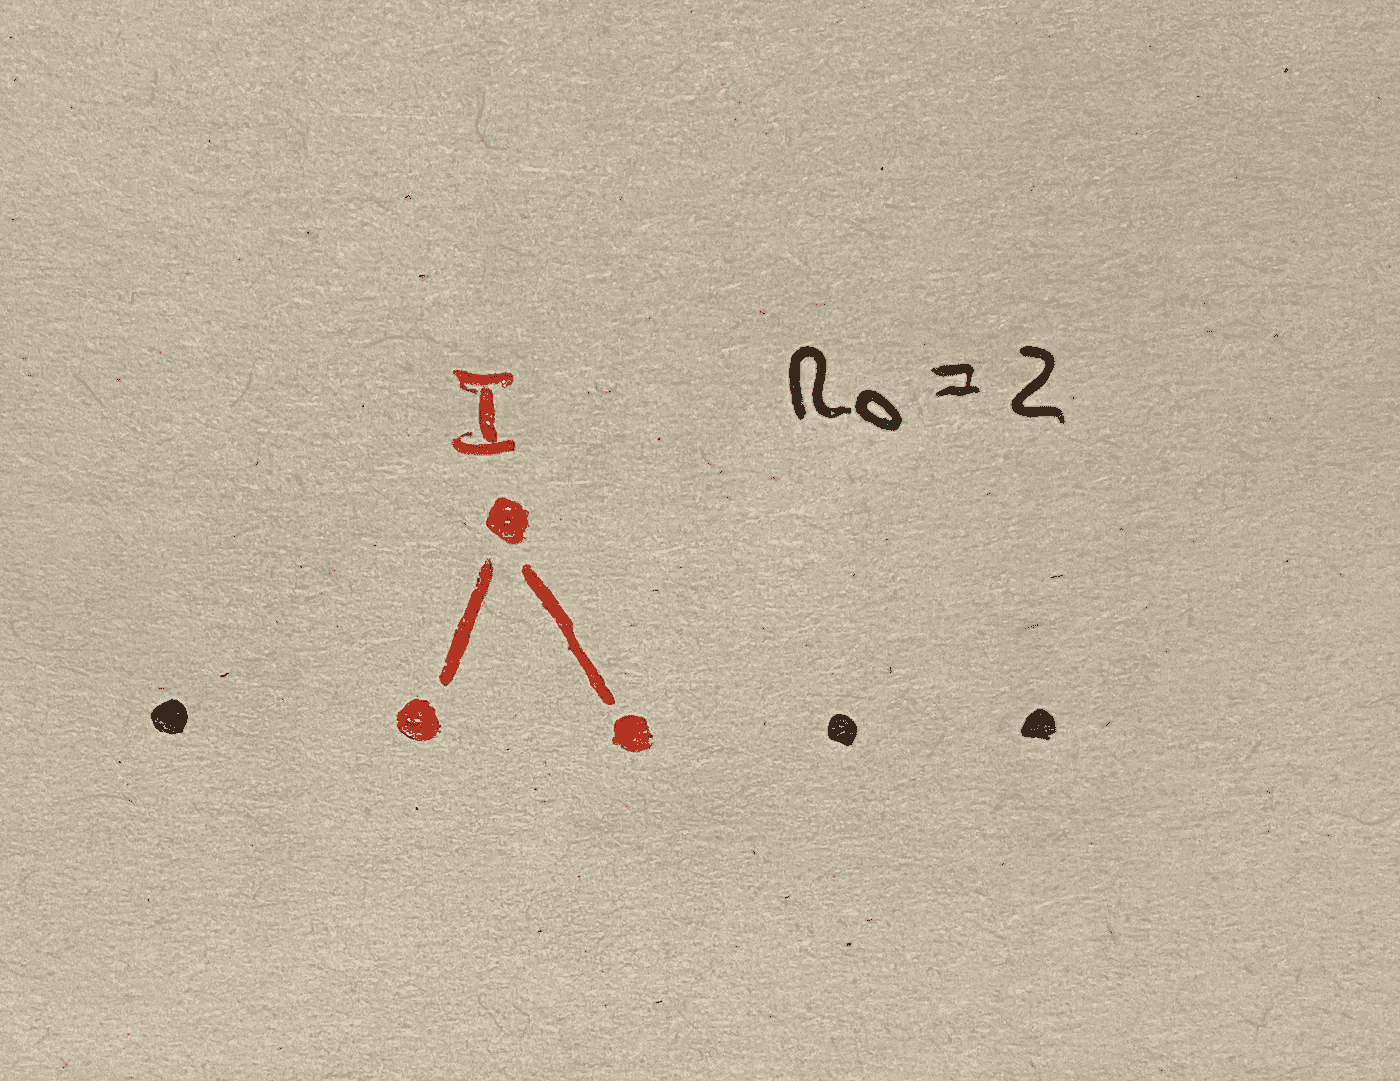 I
R₀ = 2